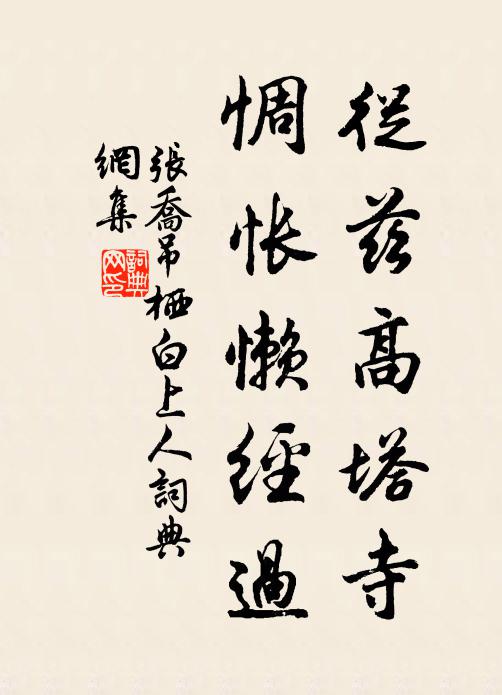 從茲高塔寺
惆怅懒經過
張喬吊栖白上人詞典
網集
詞典
网印